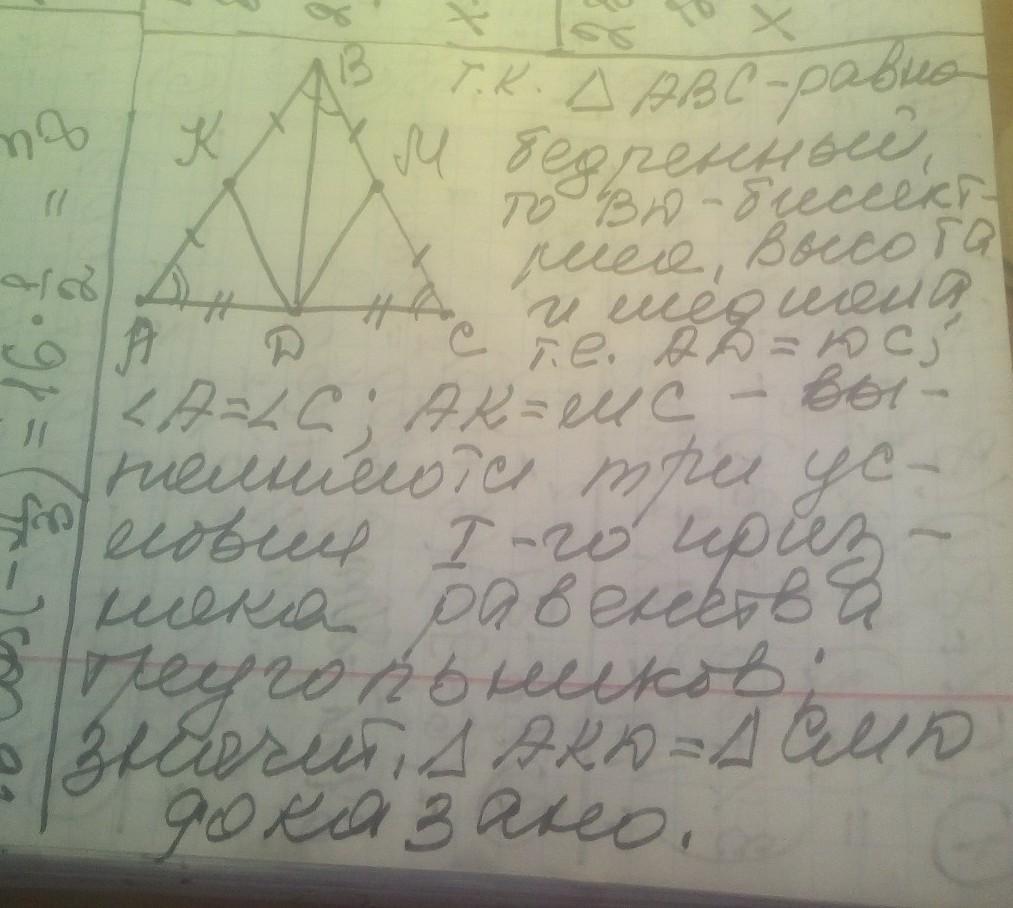 B
К
М
А
D
С
т.к. △ ABC - равно
бедренный,
то BD - биссект-
риса, высота
и медиана,
т.е. AD = DC;
∠A=∠C; AK=MC - вы-
полняются три ус-
ловия I-го приз-
нака равенства
треугольников;
значит, △ AKD = △ CMD
доказано.
= 16 ·